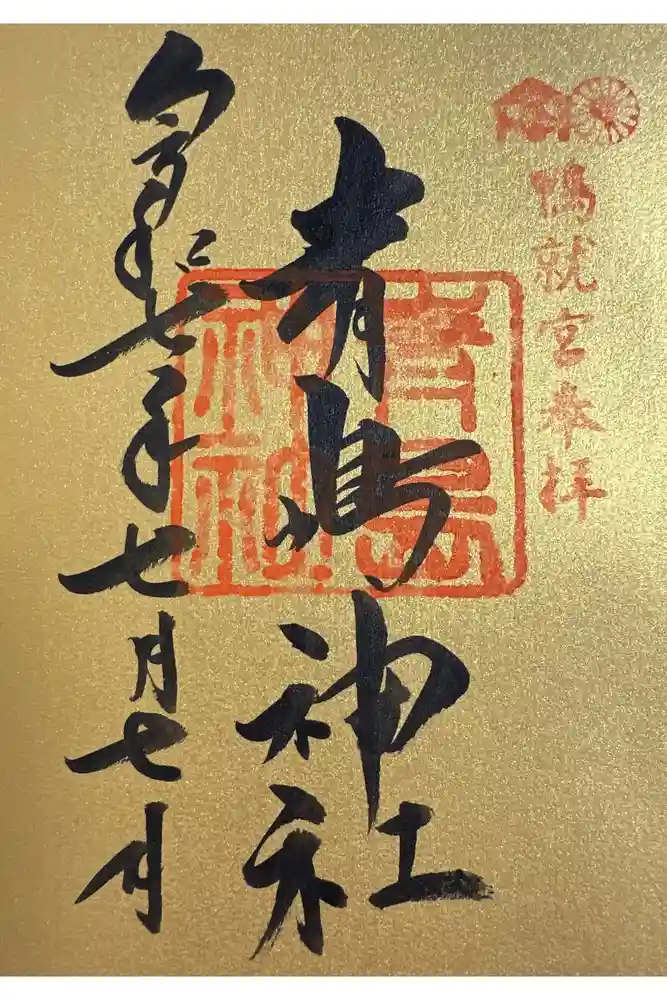 鴨就宮参拝
青島神社
青島神社
令和七年七月七日